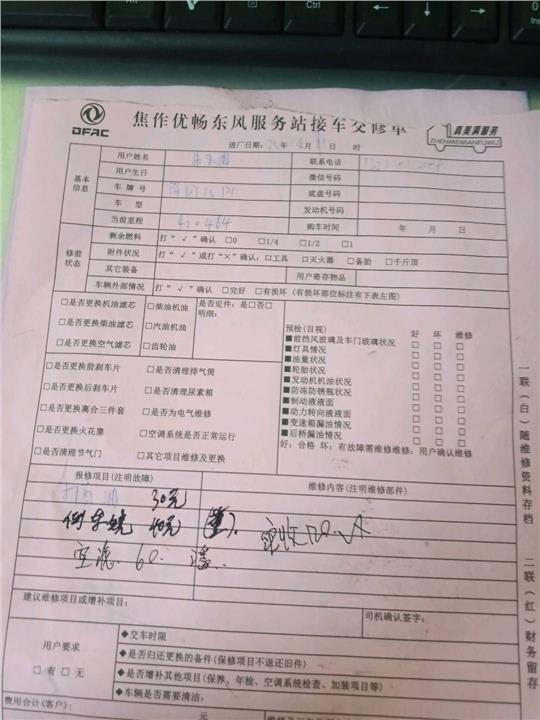 Ctrl
DFAC
焦作优畅东风服务站接车交修单
真美满服务
ZHENMEIMANFUWU
进厂日期: 月 日 时
基本信息
用户姓名
联系电话
用户生日
微信号码
车牌号
底盘号码
车型
发动机号码
当前里程 420464
购车时间 年 月 日
修前状态
剩余燃料 打“√”确认 □0 □1/4 □1/2 □1
附件状况 打“√”或打“×”确认:□工具 □灭火器 □备胎 □千斤顶
其它装备
用户寄存物品
车辆外部情况 打“√”确认 □完好 □有损坏(有损坏部位标注有下表左图)
□是否更换机油滤芯 □柴油机油 是否定件:是□否□
明细:
□是否更换柴油滤芯 □汽油机油
□是否更换空气滤芯 □齿轮油
预检(目视) 好 坏 维修
■前挡风玻璃及车门玻璃状况 □ □ □
■灯具情况 □ □ □
■油量状况 □ □ □
■轮胎状况 □ □ □
■发动机机油状况 □ □ □
■防冻防锈瓶状况 □ □ □
■制动液液面 □ □ □
■动力转向液液面 □ □ □
■变速箱漏油情况 □ □ □
■后桥漏油情况 □ □ □
好:合格 坏:有故障需维修维修:用户确认维修
□是否更换前刹车片 □是否清理排气筒
□是否更换后刹车片 □是否清理尿素箱
□是否更换离合三件套 □是否为电气维修
□是否更换火花塞 □空调系统是否正常运行
□是否清理节气门 □其它项目维修及更换
报修项目(注明故障)
维修内容(注明维修部件)
30元
倒车镜
60.
建议维修项目或增补项目:
司机确认签字:
用户要求
□有 □无
◆交车时限
◆是否归还更换的备件(保修项目不退还旧件)
◆是否增补其他项目(保养、年检、空调系统检查、加装项目等)
◆车辆是否需要清洁:
费用合计(客户): 元
一联(白)随维修资料存档
二联(红)财务留存